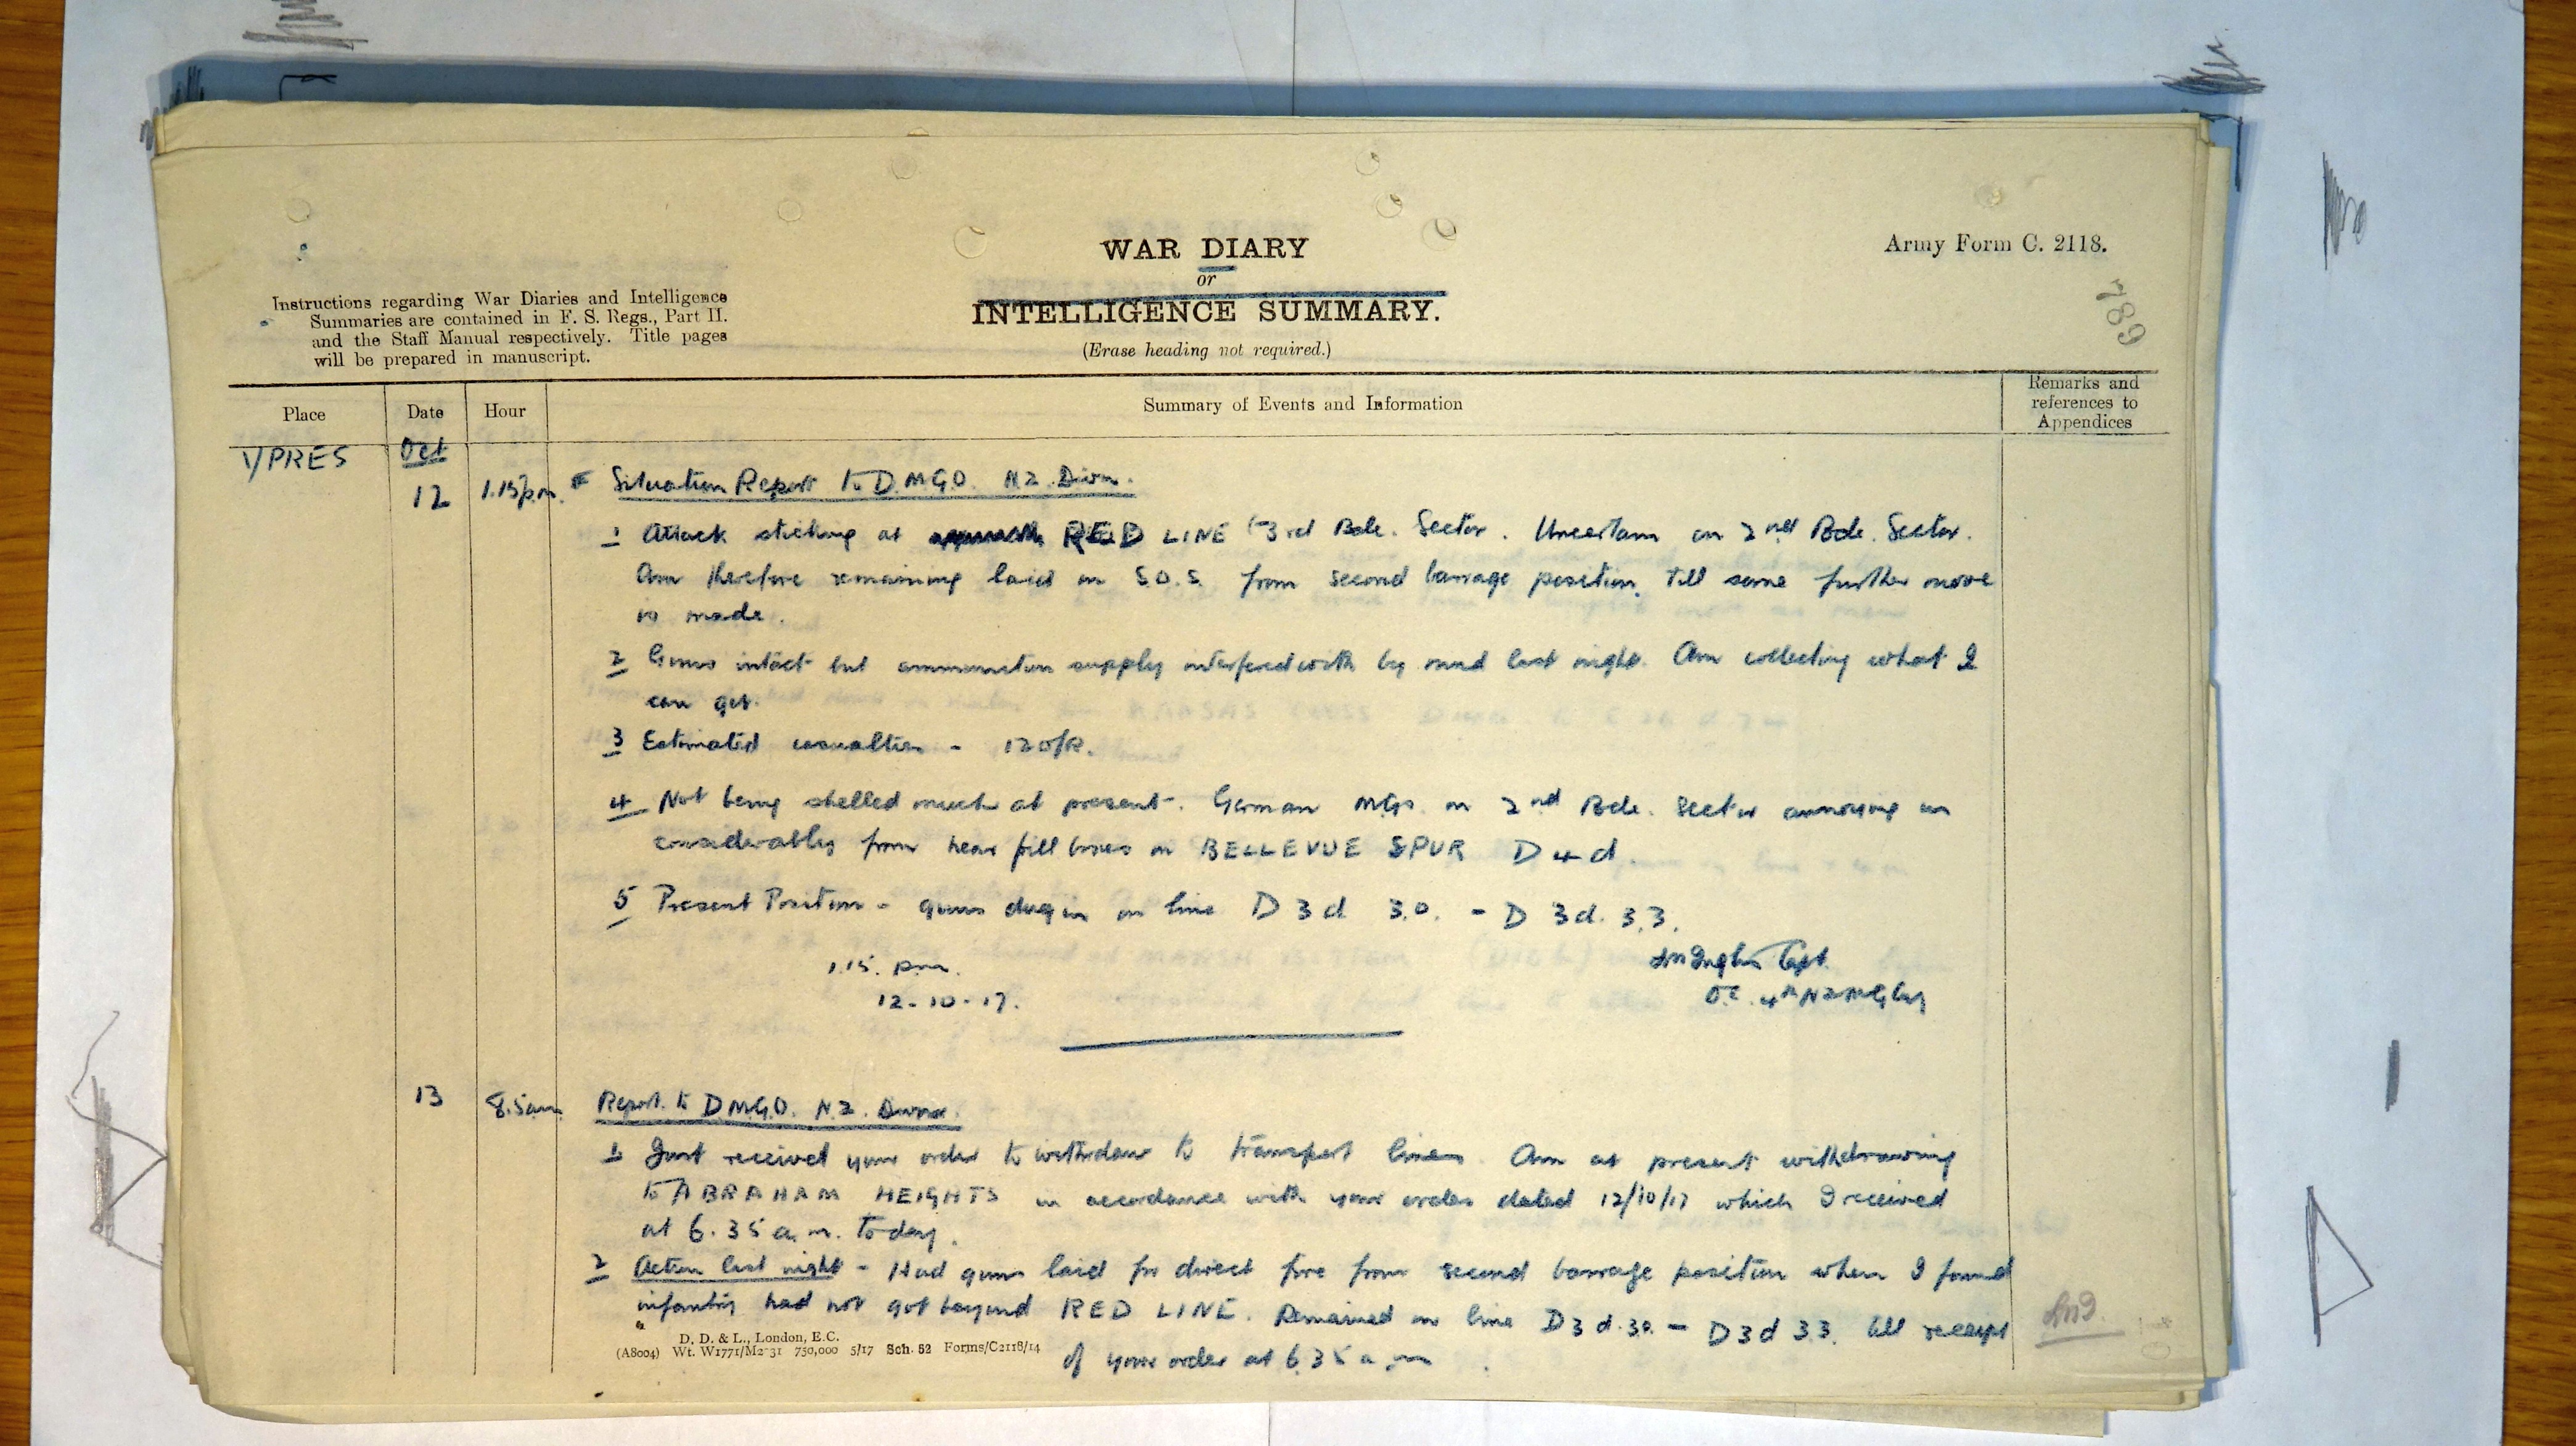 WAR DIARY
or
INTELLIGENCE SUMMARY.
(Erase heading not required.)
Army Form C. 2118.
789
Instructions regarding War Diaries and Intelligence
Summaries are contained in F. S. Regs., Part II.
and the Staff Manual respectively. Title pages
will be prepared in manuscript.
Place Date Hour Summary of Events and Information Remarks and
references to
Appendices
YPRES Oct
12 1.15pm. Situation Report to D.M.G.O. N.Z. Divn.
1 Attack sticking at RED LINE 3rd Bde. Sector. Uncertain on 2nd Bde. Sector.
Am therefore remaining laid on S.O.S. from second barrage position till some further move
is made.
2 Guns intact but ammunition supply interfered with by mud last night. Am collecting what I
can get.
3 Estimated casualties - 12 O/R.
4 Not being shelled much at present. German MGs. on 2nd Bde. Sector annoying us
considerably from near pill boxes on BELLEVUE SPUR D 4 d.
5 Present Position - guns dug in on line D 3 d 3.0. - D 3 d. 3.3.
1.15. p.m. Capt.
12-10-17. O.C. 4th NZMG Coy
13 8.5am Report to D.M.G.O. N.Z. Divn.
1 Just received your order to withdraw to transport lines. Am at present withdrawing
to ABRAHAM HEIGHTS in accordance with your order dated 12/10/17 which I received
at 6.35 a.m. today.
2 Action last night - Had guns laid for direct fire from second barrage position when I found
infantry had not got beyond RED LINE. Remained on line D3 d.30. - D3d 33. till receipt
of your order at 6.35 a.m.
D. D. & L., London, E.C.
(A8004) Wt. W1771/M2-31 750,000 5/17 Sch. 52 Forms/C2118/14